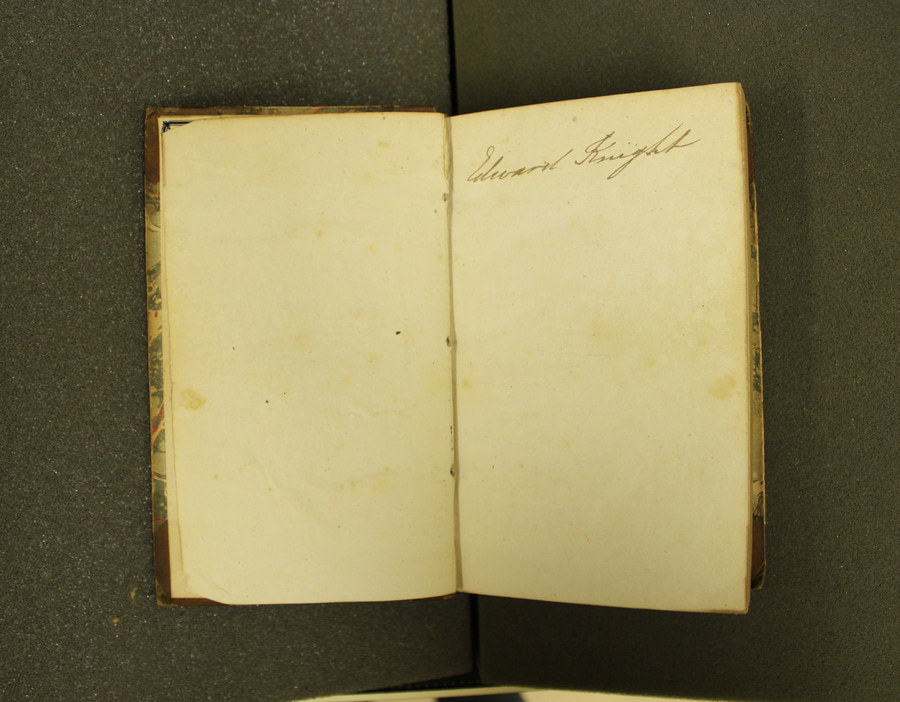 Edward Knight